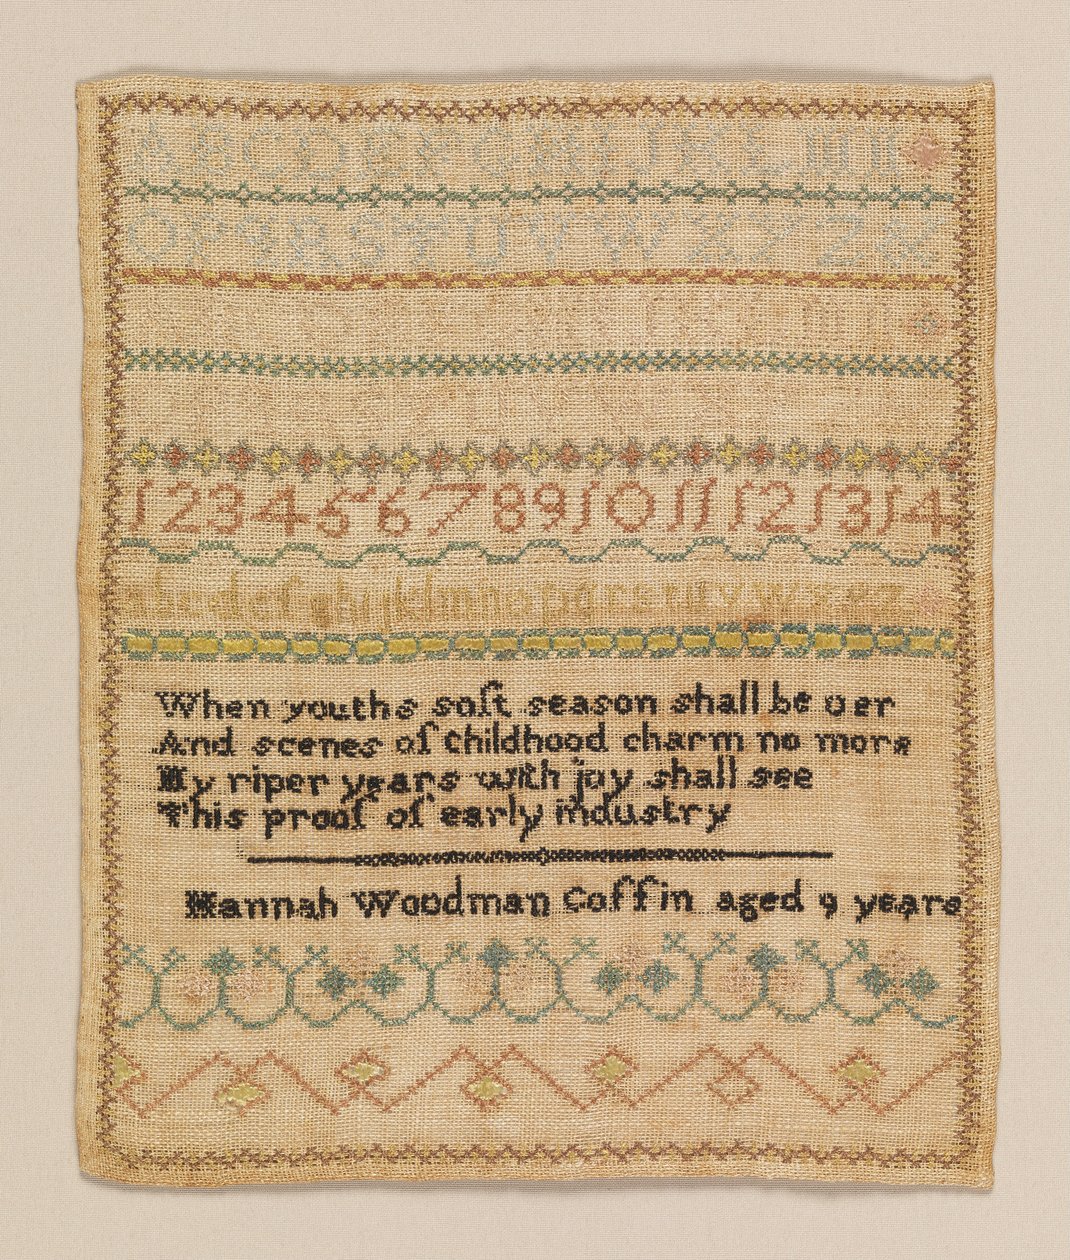 ABCDEFGHIJKLMN
OPQRSTUVWXYZ
1234567891011121314
abcdefghijklmnopqrstuvwxyz
When youths soft season shall be oer
And scenes of childhood charm no more
My riper years with joy shall see
This proof of early industry
Hannah Woodman Coffin aged 9 years